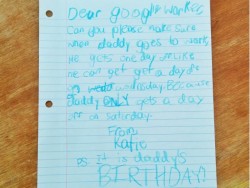 Dear google worker,
Can you please make sure
when daddy goes to work,
He gets one day off. Like
he can get a day off
on wednesday. Because
daddy ONLY gets a day
off on Saturday.
From,
Katie
P.S. It is daddy's
BIRTHDAY!